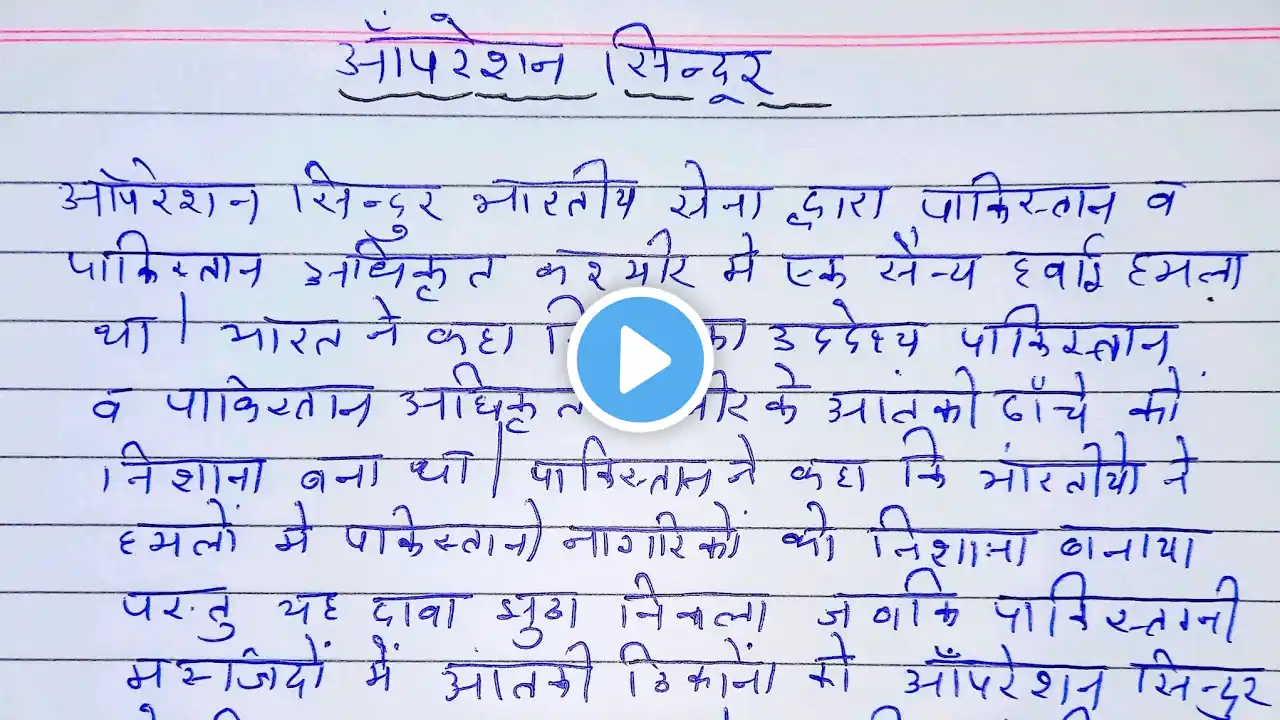 ऑपरेशन सिन्दूर
ऑपरेशन सिन्दुर भारतीय सेना द्वारा पाकिस्तान व
पाकिस्तान अधिकृत कश्मीर में एक सैन्य हवाई हमला
था। भारत ने कहा का उद्देश्य पाकिस्तान
व पाकिस्तान अधिकृत के आंतकी ढाँचे को
निशाना बना था। पाकिस्तान ने कहा कि भारतीयो ने
हमलों में पाकिस्तानी नागरिकों को निशाना बनाया
परन्तु यह दावा झुठा निकला जबकि पाकिस्तानी
मस्जिदों में आंतकी ठिकानों को ऑपरेशन सिन्दुर